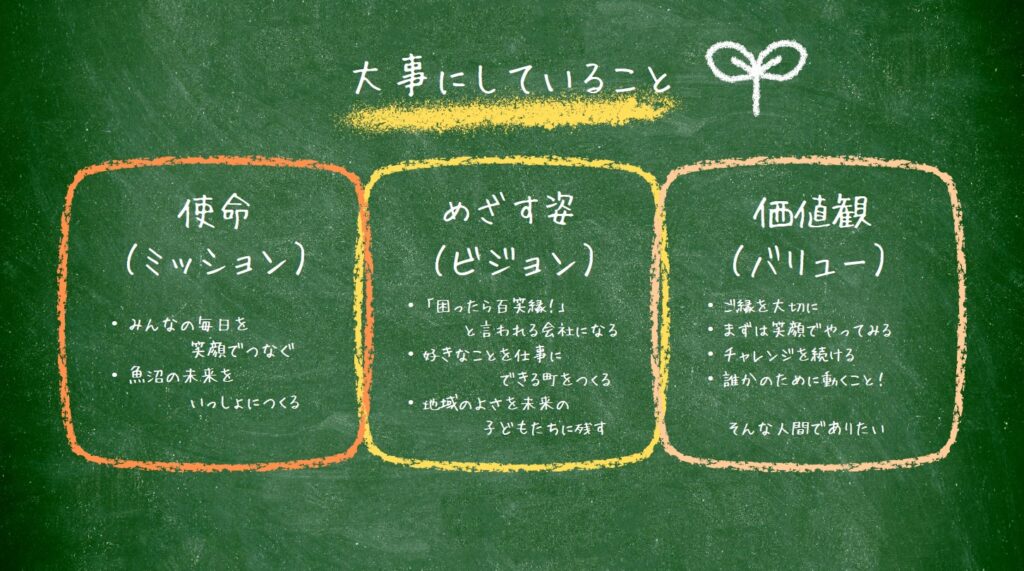 大事にしていること
使命
（ミッション）
・みんなの毎日を
笑顔でつなぐ
・魚沼の未来を
いっしょにつくる
めざす姿
（ビジョン）
・「困ったら百笑縁！」
と言われる会社になる
・好きなことを仕事に
できる町をつくる
・地域のよさを未来の
子どもたちに残す
価値観
（バリュー）
・ご縁を大切に
・まずは笑顔でやってみる
・チャレンジを続ける
・誰かのために動くこと！
そんな人間でありたい